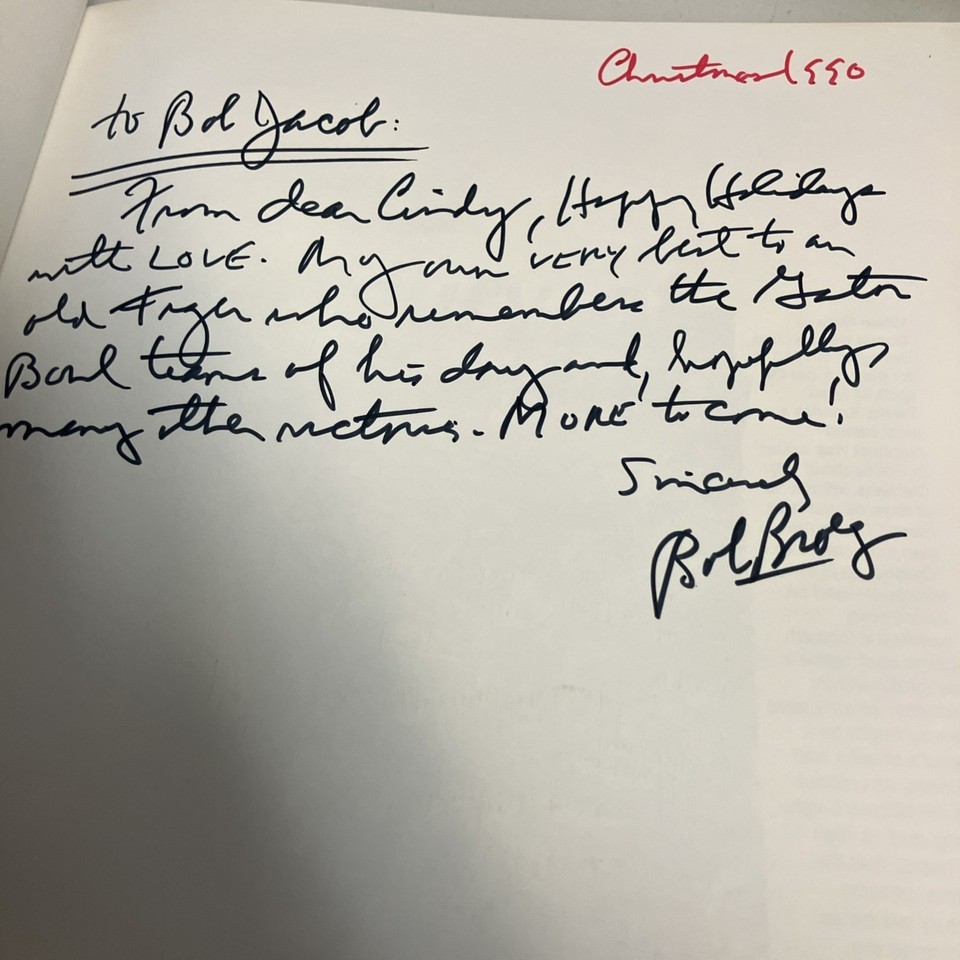 Christmas 1990
to Bob Jacob:
From dear Cindy, Happy Holidays
with LOVE. My own VERY best to an
old Tiger who remembers the Gator
Bowl teams of his day and, hopefully,
many other victories. MORE to come!
Sincerely
Bob Broeg